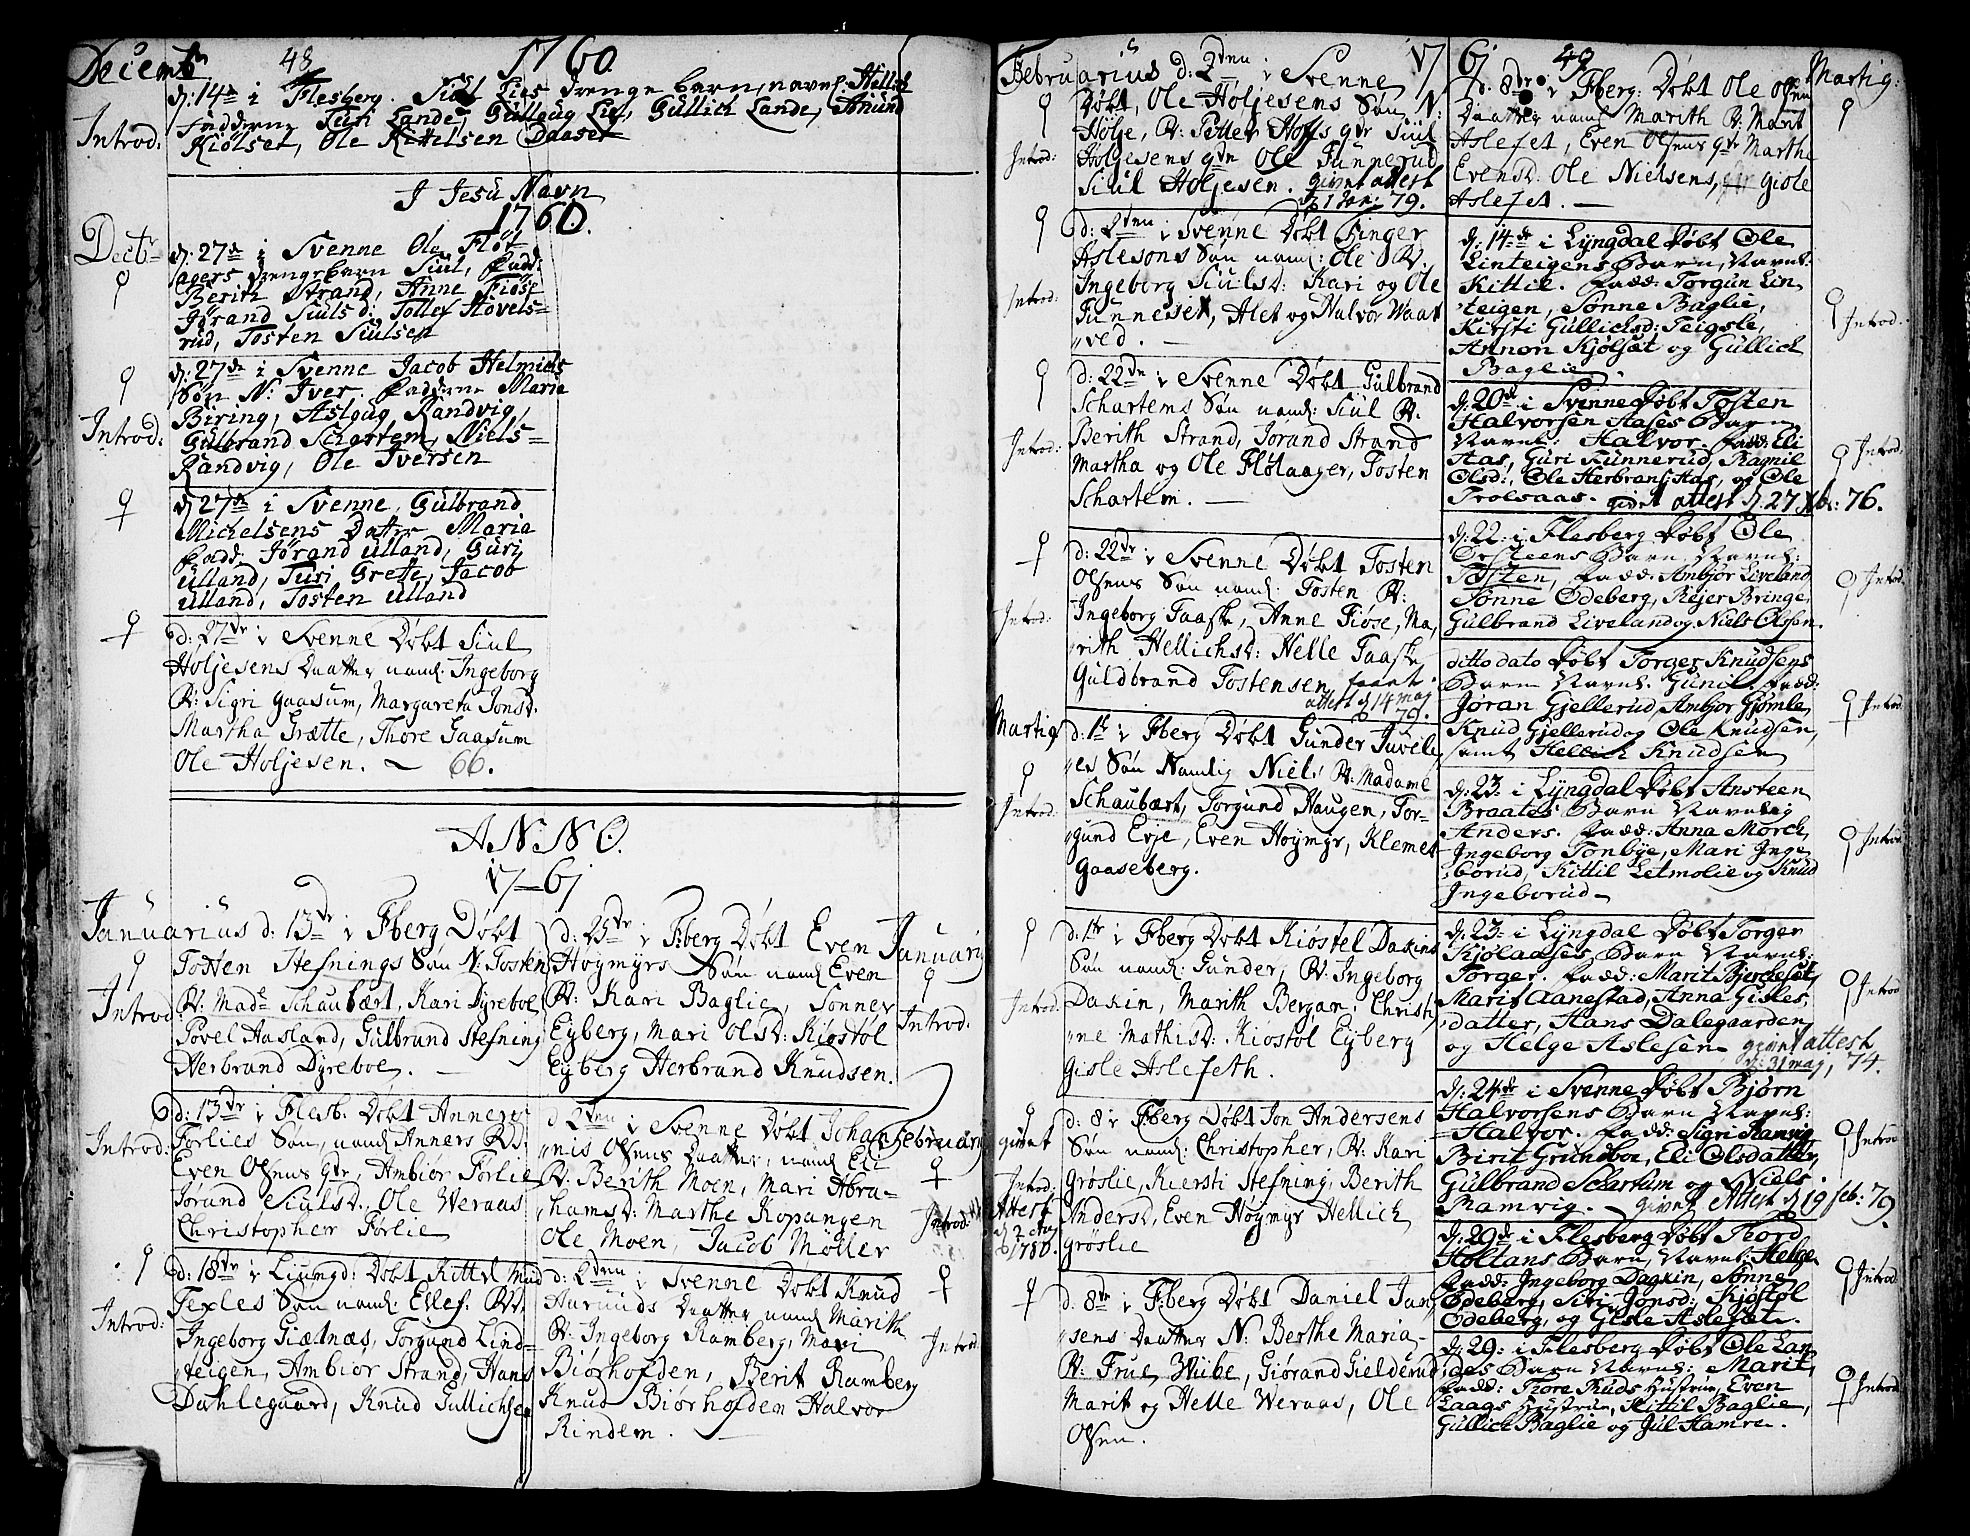 Decemb: 48 1760.
d: 14de i Flesberg. Siul Lies drenge barn, navnl: Hellich
Introd. Fadderne Turi Lande, Gullaug Lie, Gullich Lande, Tønund
Kiølset, Ole Kittelsen Daaset
J Jesu Navn
1760.
Decbr d: 27de i Svenne Ole Fløt
agers drengebarn Siul, Fadd:
Berith Strand, Anne Fiøse
Jørand Siulsd: Tollef Hovels=
rud, Tosten Siulsen
d: 27de i Svenne Jacob Helmichs
Søn N: Iver. Fadderne Maria
Introd: Biring, Aslaug Randvig,
Gulbrand Schartem, Niels=
Randvig, Ole Iversen
d: 27de i Svenne, Gulbrand
Michelsens Datter Maria
Fadd: Jørand Ulland, Guri
Ulland, Turi Grette, Jacob
Ulland, Tosten Ulland
d: 27de i Svenne Døbt Siul
Holjesens Daatter naml: Ingeborg
F: Sigri Gaasum, Margareta Jonsd:
Martha Grætte, Thore Gaasum
Ole Holjesen. — 66.
ANNO.
17—61
Januarius d: 13de i Fberg Døbt
Tosten Stefnings Søn N: Tosten
Introd: F: Made Schaubært, Kari Dyreboe
Povel Aasland, Gulbrand Stefning
Herbrand Dyreboe. —
d: 13de i Flesb: Døbt Anners
Introd: Førlies Søn, naml: Anners F:
Even Olsens qde, Ambiør Førlie
Jorand Siulsd: Ole Weraas
Christopher Førlie
d: 18de i Liungd: Døbt Kittel Mud
Texles Søn naml: Ellef. F:
Introd: Ingeborg Giætnæs, Torgund Lind=
teigen, Ambiør Strand, Hans
Dahlegaard, Knud Gullichsen
d: 25de i Fberg Døbt Even Januarij
Høgmyrs Søn naml: Even
F: Kari Baglie, Sonner
Eyberg, Mari Olsd: Kiøstøl Introd:
Eyberg Herbrand Knudsen.
d 2den i Svenne Døbt Johan Februarij
nis Olsens Daatter, naml: Eli
F: Berith Moen, Mari Abra=
hamsd: Marthe Kopangen Introd:
Ole Moen, Jacob Møller
d: 2den i Svenne Døbt Knud
Aaruuds Daatter naml: Marith
F: Ingeborg Ramberg, Mari Introd:
Biørhofden, Berit Ramberg
Knud Biørhofden Halvor
Rindem. —
Februarius d: 2den i Svenne 17
Døbt, Ole Holjesens Søn N:
Hølje, F: Petter Hoffs qde Siul
Introd: Holgesens qde Ole Funnerud
Siul Holjesen. givet attest
d 1 Jan: 79.
d: 2den i Svenne Døbt Finger
Aslesons Søn naml: Ole F:
Introd: Ingeborg Siulsd: Kari og Ole
Funneset, Alet og Halvor Waat
ved. —
d: 22de i Svenne Døbt Gulbrand
Schartems Søn naml: Siul F:
Introd: Berith Strand, Jørand Strand
Martha og Ole Fløtaager, Tosten
Schartem. —
d: 22de i Svenne Døbt Tosten
Olsens Søn naml: Tosten F:
Introd: Ingeborg Taaske, Anne Fiøse, Ma,
rith Hellichsd: Helle Taaske
Guldbrand Tostensen
attest d 14 maj
79.
Martij d: 1te i Fberg Døbt Gunder Juvele
es Søn Namlig Niels F: Madame
Introd: Schaubært, Torgund Haugen, Tor=
gund Evje, Even Hogmyr, Klemet
Gaaseberg.
d: 1te i Fberg Døbt Kiøstel Daxins
Søn naml: Gunder, F: Ingeborg
Introd: Daxin, Marith Bergan, Christi,
ne Mathisd: Kiøstøl Eyberg
Gisle Aslefeth.
d: 8 i Fberg Døbt Jon Andersens
givet Søn naml: Christopher, F: Kari
Introd: Grøslie, Kiersti Stefning, Berith
Attest Andersd, Even Høgmyr Hellich
1780. Grøslie
d: 8de i Fberg Døbt Daniel Jan,
sens Daatter N: Berthe Maria
F: Frue Wiibe, Giørand Gielderud
Marit og Helle Weraas, Ole
Olsen.
61 49 Martij:
d. 8de i Fberg: Døbt Ole Olsen
Daatter naml: Marith F: Marit
Aslefet, Even Olsens qde Marthe
Evensd: Ole Nielsens, Gisle
Aslefet. —
d: 14de i Lyngdal Døbt Ole
Linteigens Barn, Navnl:
Kittil. Fadd: Torgun Lin
teigen, Sønne Baglie, Introd:
Kirsti Gullichsd: Teigsle,
Annon Kjølsæt og Gullich
Baglie.
d: 20de i Svenne Døbt Tosten
Halvorsen Aases Barn
Navnl: Halvor. Fadd: Eli Introd:
Aas, Guri Funnerud, Ragnil
Olsd:, Ole Herbrans: Aas, og Ole
Trolsaas. givet attest d. 27 Xbr: 76.
d: 22: i Flesberg Døbt Ole
Ørsteens Barn Navnl:
Tosten, Fadd: Ambjør Liveland Introd:
Sønne Ødeberg, Rejer Bringe,
Gulbrand Liveland og Niels Olsen.
ditto dato Døbt Torger Knudsens
Barn Navnl: Gunil. Fadd:
Jøran Gjellerud, Ambjør Gjømle Introd:
Knud Gjellerud og Ole Knudsen,
samt Hellich Knudsen
d: 23: i Lyngdal Døbt Ansteen
Braates Barn Navnlig
Anders. Fadd: Anna Mørch, Introd
Ingeborg Tonbye, Mari Inge
borud, Kittil Letmolie og Knud
Ingeborud—
d: 23: i Lyngdal Døbt Torger
Kjølaases Barn Navnl:
Torger. Fadd: Marit Bjerkeset, Introd
Marit Aanestad, Anna Gisles,
datter, Hans Dalegaarden
og Helge Aslesen. givet attest
d: 31 maj, 74.
d: 24de i Svenne Døbt Bjørn
Halvorsens Barn Navnl:
Halvor. Fadd: Sigri Ramvig Introd
Birit Grundboe, Eli Olsdatter,
Gulbrand Schartum og Niels
Ramvig. — givet Attest d 19 feb: 79.
d: 29de i Flesberg Døbt Thord
Holtans Barn Navnl: Helge
Fadd: Ingeborg Dagxin, Sønne Introd
Ødeberg, Siri Jonsd:, Kjøstøl
Ødeberg, og Gisle Aslefæt.
d: 29: i Flesberg Døbt Ole Lan,
des Barn Navnl: Marit,
Fadd: Thore Ruds Hustrue, Even Introd
Laags Hustrue, Kittil Baglie,
Gullich Baglie og Jul Hamren.